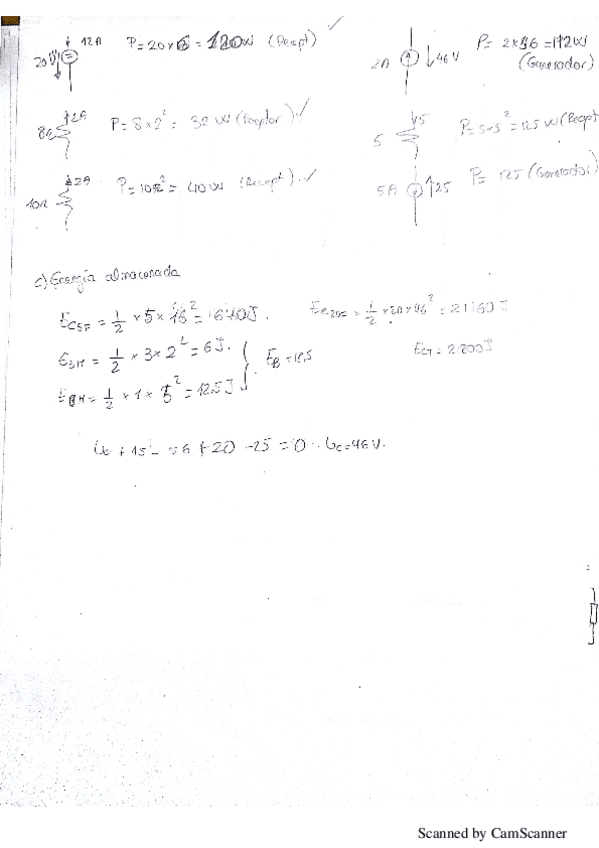 12A P = 20 × 6 = 120W (Recept) ✓
20V
2A 46V P = 2 × 56 = 112W
(Generador)
8Ω 2A P = 8 × 2² = 32 W (Receptor) ✓
5 5 P = 5·5² = 125 W (Recept
10Ω 2A P = 10·2² = 40W (Recept) ✓
5A 25 P = 125 (Generador)
c) Energía almacenada
= 1/2 × 5 × 16² = 640J.
= 1/2 × 20 × 46² = 21160 J
= 1/2 × 3 × 2² = 6J.
E_B = 18,5
= 2.800J
= 1/2 × 1 × 5² = 12.5J
+ 15 - 56 + 20 - 25 = 0 U_C = 46V.
Scanned by CamScanner